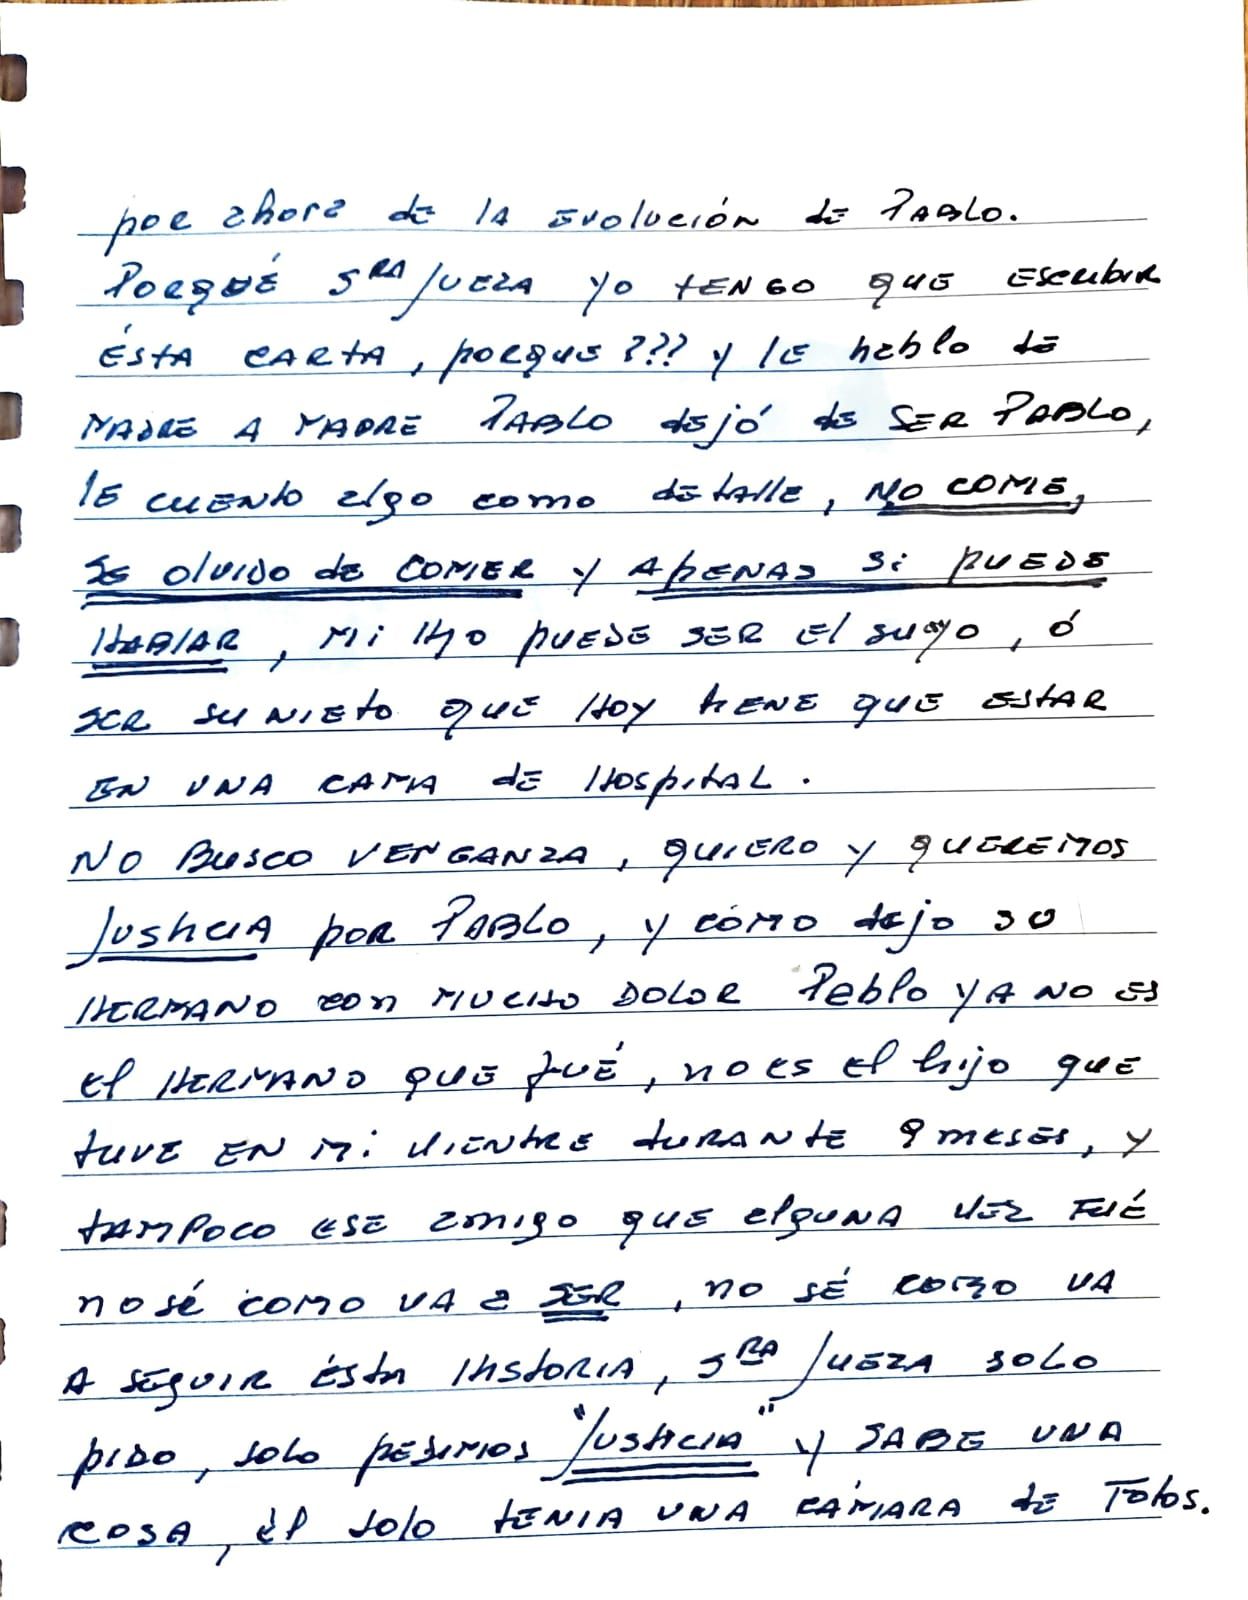 por ahora de la evolución de Pablo.
Porqué Sra Jueza yo tengo que escribir
ésta carta, porque??? y le hablo de
madre a madre Pablo dejó de ser Pablo,
le cuento algo como detalle, no come,
se olvido de comer y apenas si puede
hablar, mi hijo puede ser el suyo, ó
ser su nieto que hoy tiene que estar
en una cama de Hospital.
No busco venganza, quiero y queremos
Justicia por Pablo, y cómo dejo su
hermano con mucho dolor Pablo ya no es
el hermano que fué, no es el hijo que
tuve en mi vientre durante 9 meses, y
tampoco ese amigo que alguna vez fué
no sé como va a ser, no sé como va
a seguir ésta historia, Sra Jueza solo
pido, solo pedimos "Justicia" y sabe una
cosa, él solo tenia una cámara de fotos.